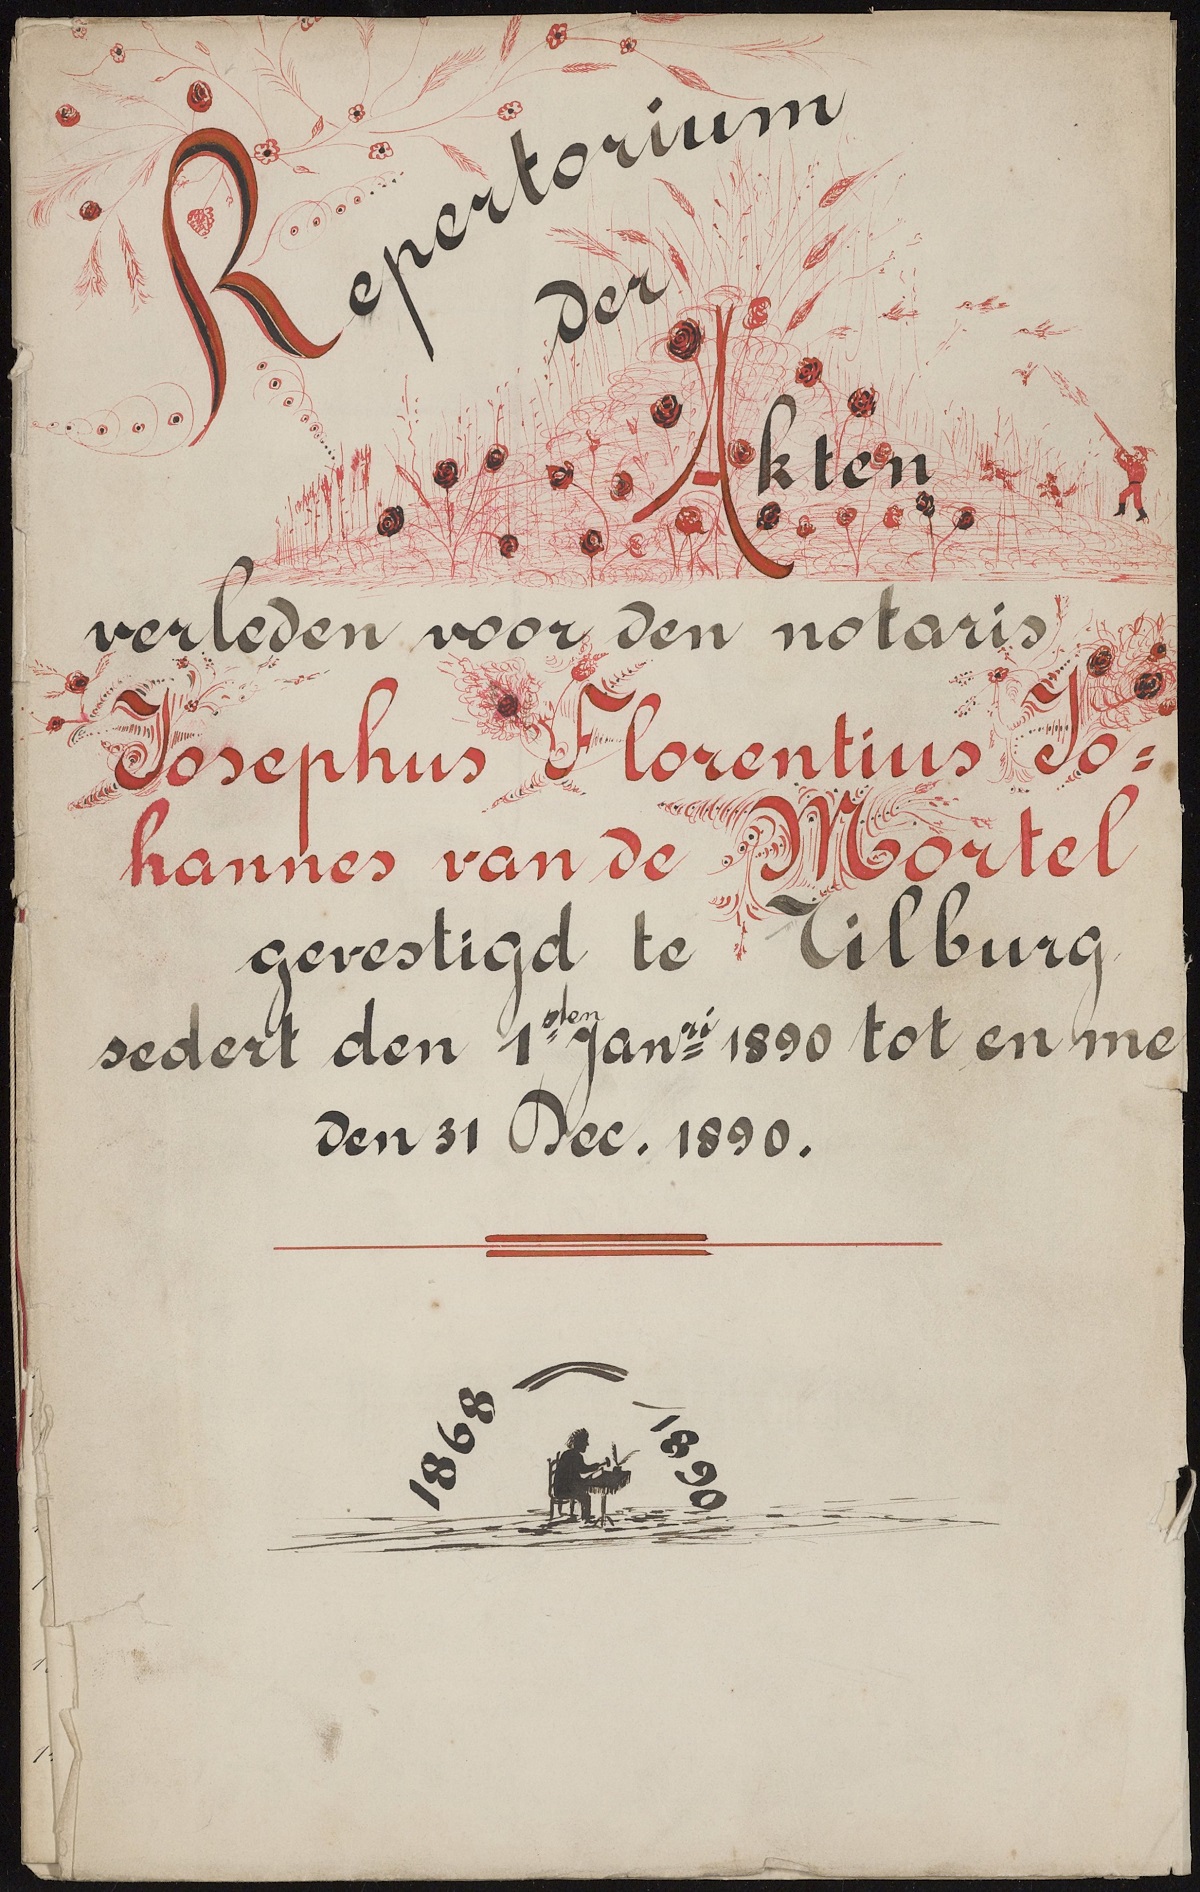 Repertorium
der
Akten
verleden voor den notaris
Josephus Florentius Jo=
hannes van de Mortel
gevestigd te Tilburg
sedert den 1sten Janri 1890 tot en me
den 31 Dec. 1890.
1868 1890